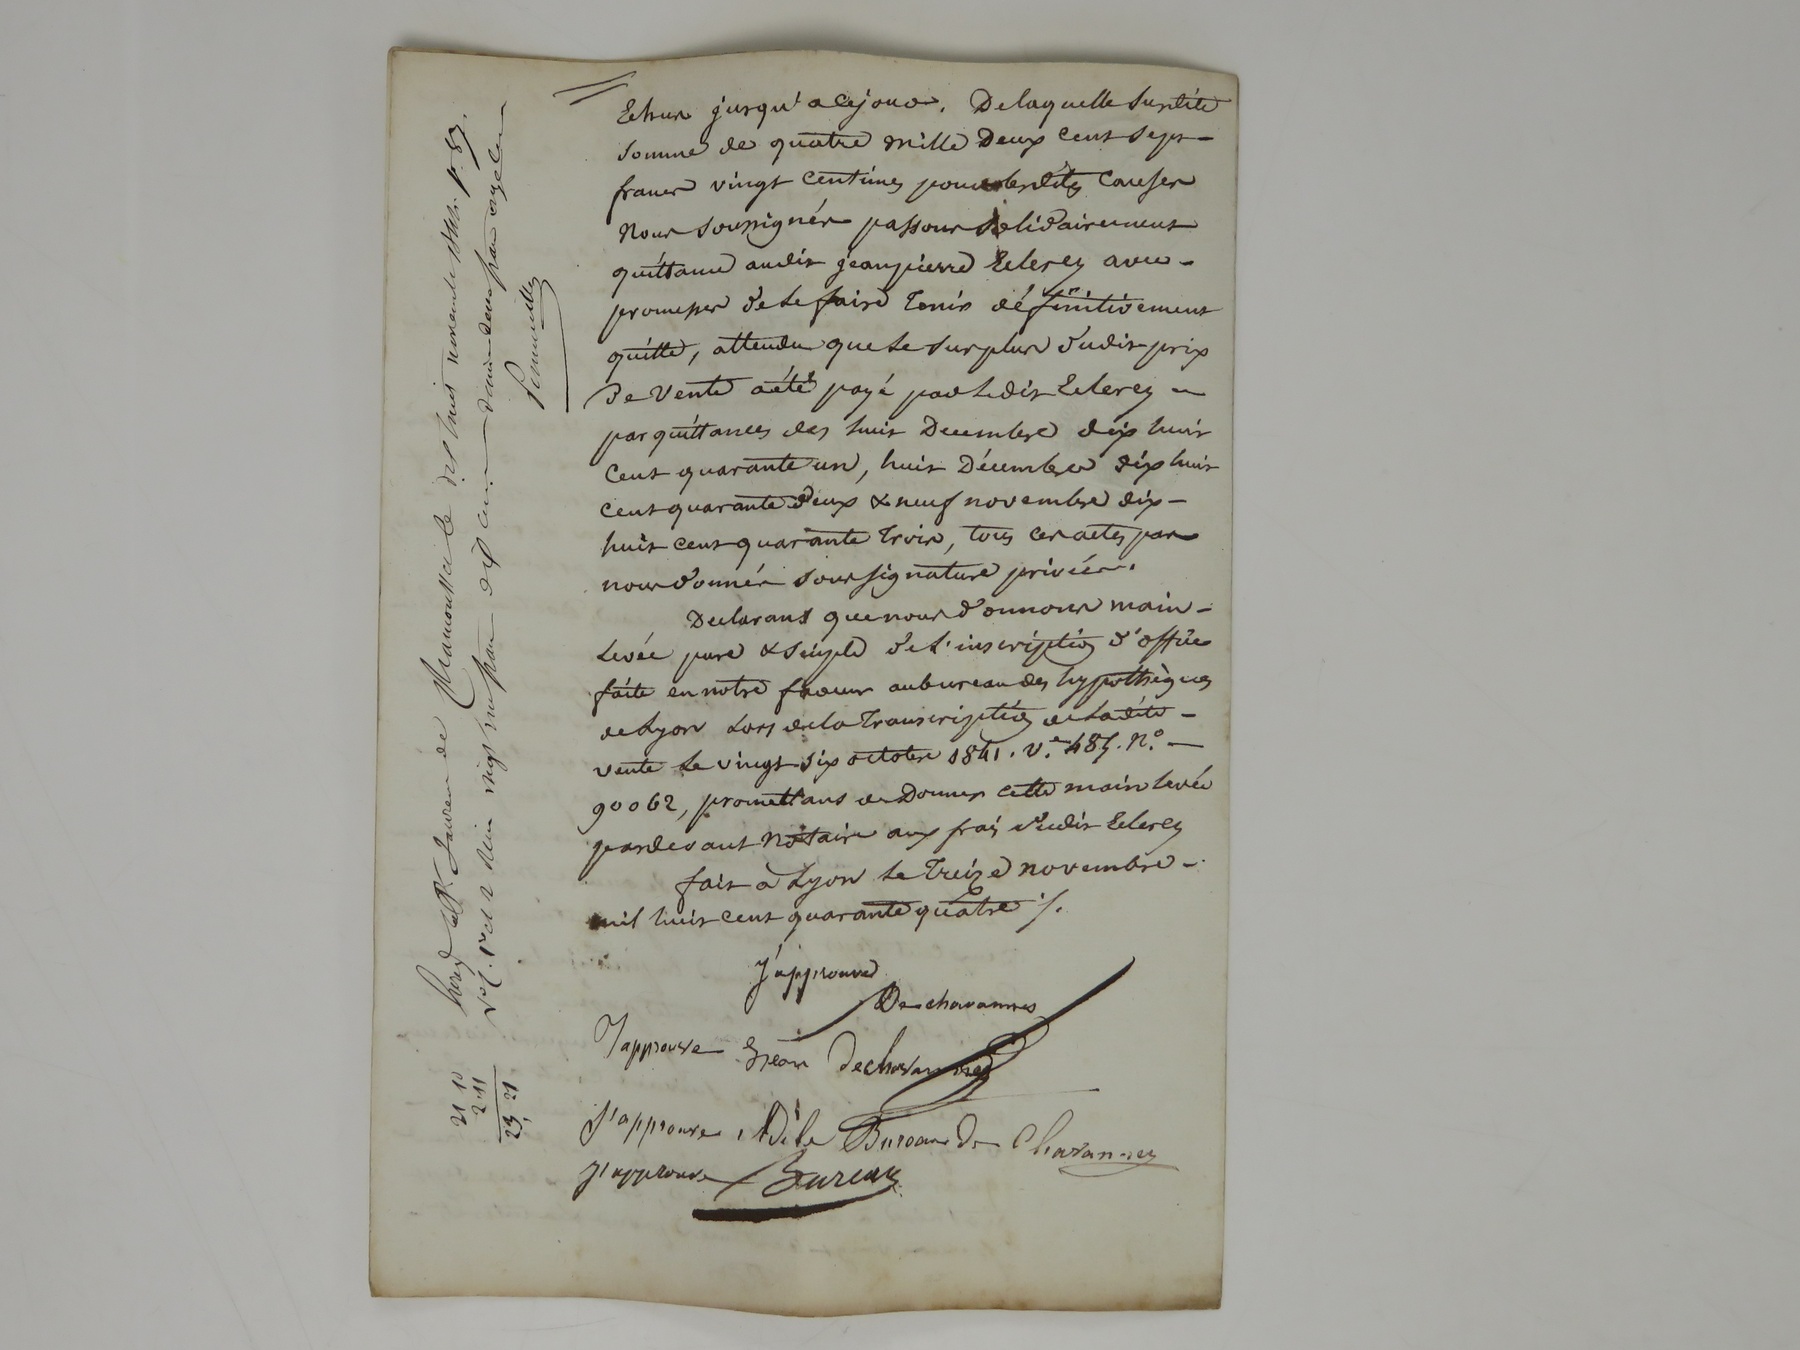 Echus jusqu'a ce jour. De laquelle susdite
somme de quatre mille Deux cent sept
francs vingt centimes pour lesdites causes
Nous soussignés passons solidairement
quittance audit jean pierre Eclercy avec
promesse de le faire tenir définitivement
quitte, attendu que le surplus dudit prix
De Vente a été payé par ledit Eclercy
par quittances des huit Decembre dix huit
cent quarante un, huit Décembre dix huit
cent quarante deux & neuf novembre dix
huit cent quarante trois, tous ces actes par
nous donnés sous signature privée.
Declarans que nous donnons main
levée pure & simple de l'inscription d'office
faite en notre faveur au bureau des hypothèques
de Lyon Lors de la Transcription de la dite
vente le vingt six octobre 1841. v.e 485. N.o
90062, promettans de Donner cette main levée
pardevant Notaire aux frais dudit Eclercy
fait à Lyon le Treize novembre
mil huit cent quarante quatre ./.
J'approuve
Dechavannes
J'approuve Jean Dechavannes
J'approuve Adèle Bureau De Chavannes
J'approuve Bureau
St Laurent de Chamousset le dix huit novembre 1844. f. 87.
21 10
2 11
23, 21